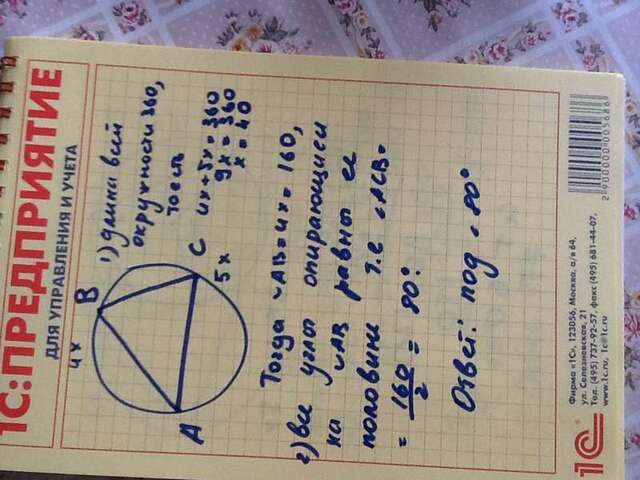 1С:ПРЕДПРИЯТИЕ
ДЛЯ УПРАВЛЕНИЯ И УЧЕТА
4x
B
A
C
5x
1) длина всей
окружности 360,
то есть
4x+5x=360
9x=360
x=40
Тогда ◡AB=4x=160,
2) все углы опирающиеся
на ◡AB равны ее
половине т.е ∠ACB=
= 160/2 = 80°.
Ответ: под ∠80°
2900000005686
1С
Фирма «1С», 123056, Москва, а/я 64,
ул. Селезневская, 21
Тел. (495) 737-92-57, факс (495) 681-44-07,
www.1c.ru, 1c@1c.ru